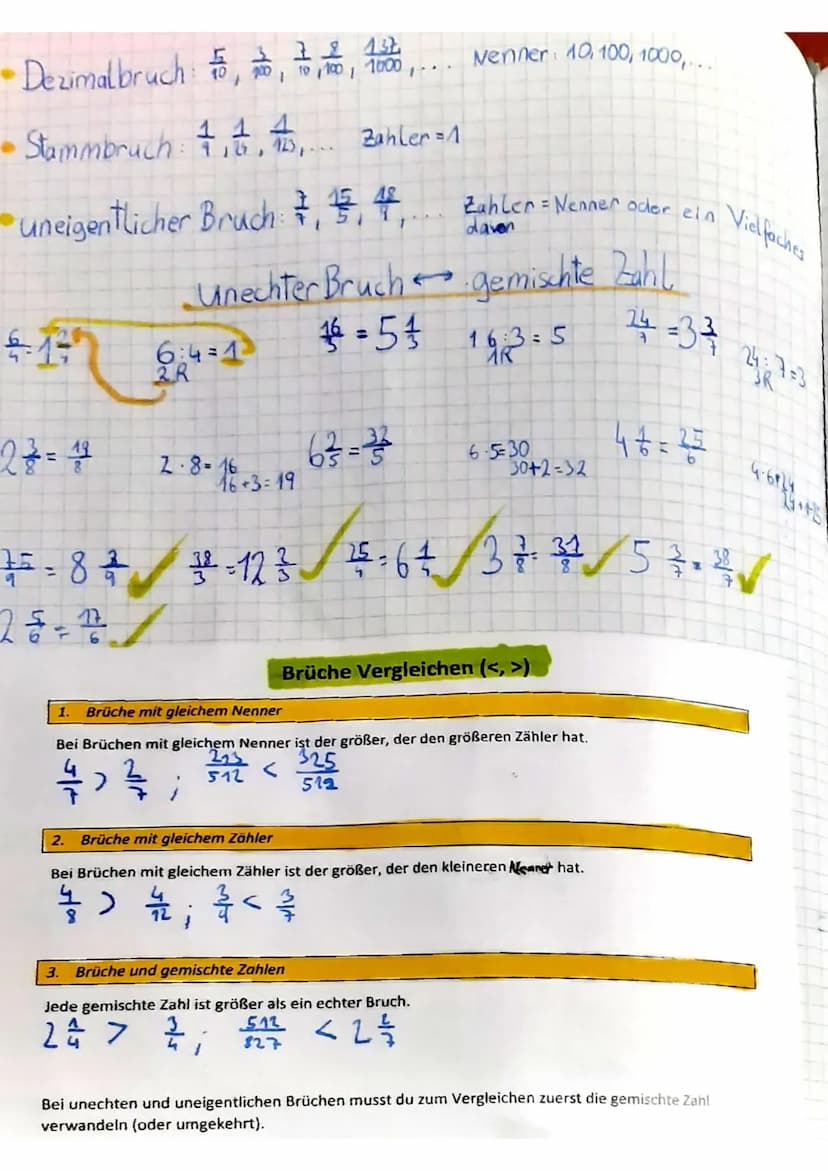 • Dezimalbruch: 5/10, 3/100, 7/10, 8/100, 137/1000, ... Nenner: 10, 100, 1000, ...
• Stammbruch: 1/9, 1/24, 1/123, ... Zahler = 1
• uneigentlicher Bruch: 7/7, 15/5, 18/9, ... Zahler = Nenner oder ein Vielfaches
davon
unechter Bruch ↔ gemischte Zahl
6/4 = 1 2/4 6 : 4 = 1 16/3 = 5 1/3 16 : 3 = 5 24/7 = 3 3/7 24 : 7 = 3
2R 1R 3R
2 3/8 = 19/8 2 · 8 = 16 6 2/5 = 32/5 6 · 5 = 30 4 1/6 = 25/6 4 · 6 = 24
16 + 3 = 19 30 + 2 = 32 24 + 1 = 25
75/9 = 8 3/9 ✓ 38/3 = 12 2/3 ✓ 25/4 = 6 1/4 ✓ 3 7/8 = 31/8 ✓ 5 3/7 = 38/7 ✓
2 5/6 = 17/6 ✓
Brüche Vergleichen (<, >)
1. Brüche mit gleichem Nenner
Bei Brüchen mit gleichem Nenner ist der größer, der den größeren Zähler hat.
4/7 > 2/7 ; 213/512 < 325/512
2. Brüche mit gleichem Zähler
Bei Brüchen mit gleichem Zähler ist der größer, der den kleineren Nenner hat.
4/8 > 4/12 ; 3/9 < 3/7
3. Brüche und gemischte Zahlen
Jede gemischte Zahl ist größer als ein echter Bruch.
2 1/4 > 3/4 ; 512/827 < 2 2/7
Bei unechten und uneigentlichen Brüchen musst du zum Vergleichen zuerst die gemischte Zahl
verwandeln (oder umgekehrt).